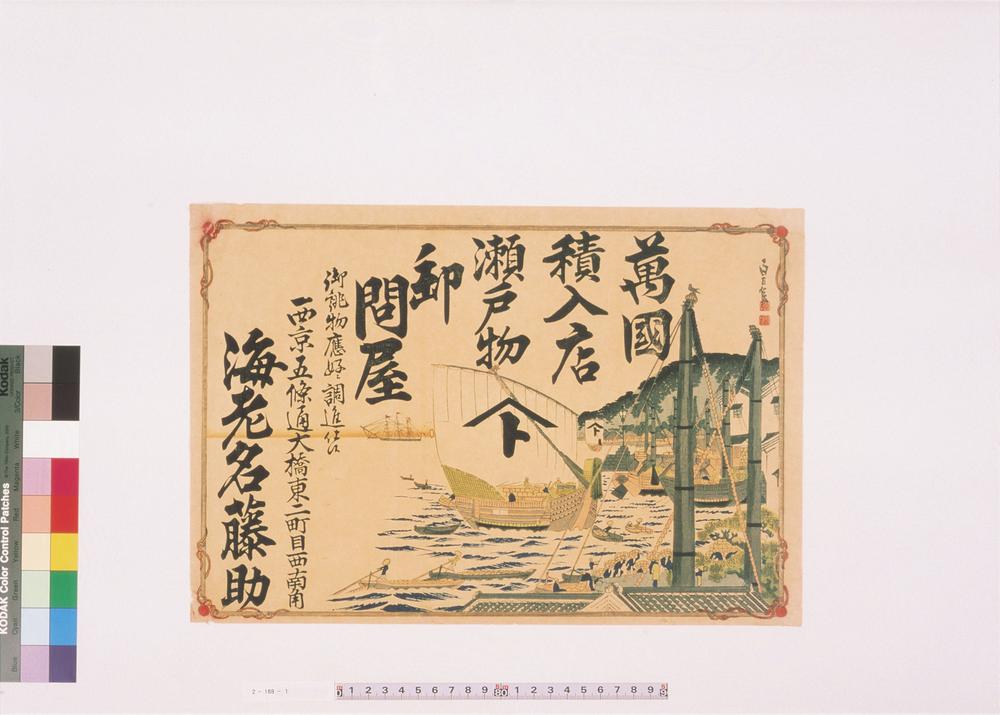 萬國
積入店
瀬戸物
卸
問屋
御誂物應好調進仕候
西京五條通大橋東二町目西南角
海老名藤助
卜
Kodak
KODAK Color Control Patches
Blue
Cyan
Green
Yellow
Red
Magenta
White
3/Color
Black
2-188-1
1 2 3 4 5 6 7 8 9 1 2 3 4 5 6 7 8 9